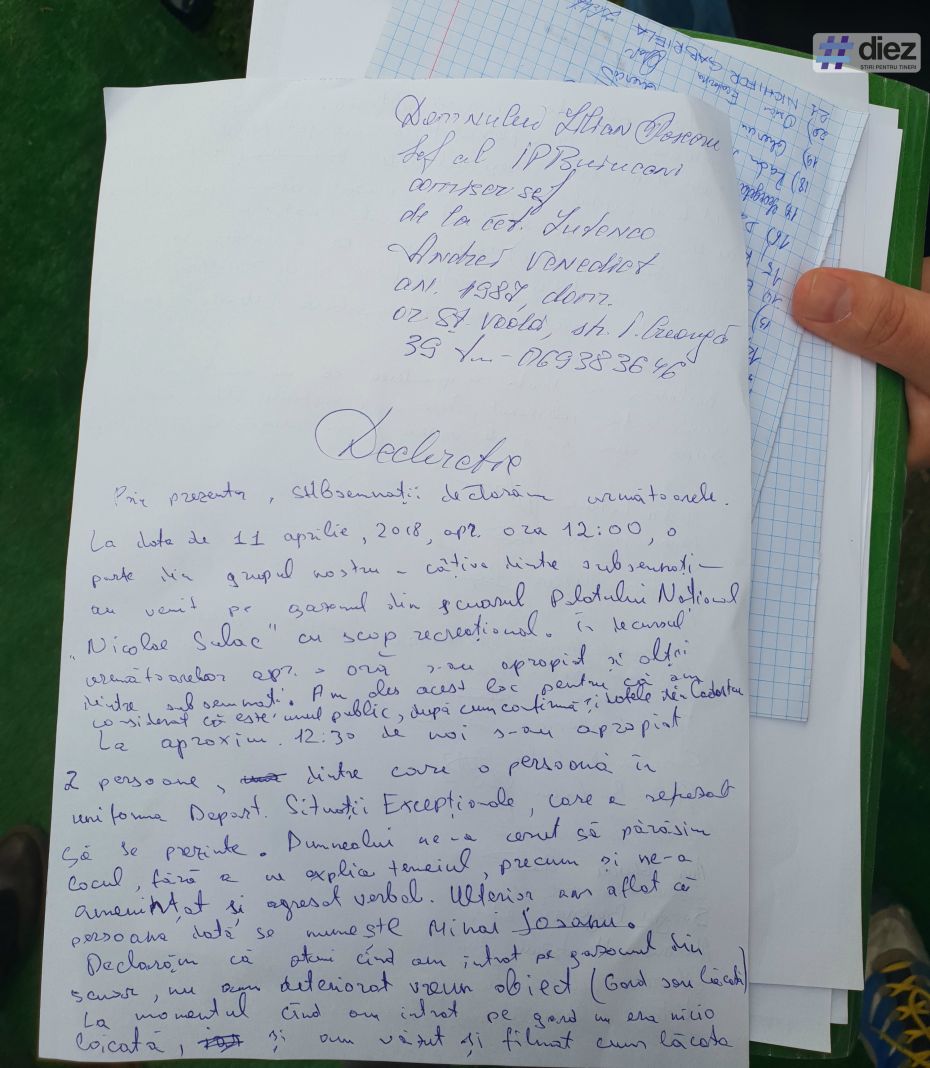 #diez
ȘTIRI PENTRU TINERI
21 NICHIFOR GABRIELA
20)
19)
18)
16)
15
14
13)
Domnului Ilian
șef al IP Buiucani
comisar șef
de la cet.
Andrei Venedict
an. 1987, dom.
or. Șt. Vodă, str. I. Creangă
39 069383646
Declarație
Prin prezenta, subsemnații declarăm următoarele.
La data de 11 aprilie, 2018, apr. ora 12:00, o
parte din grupul nostru – câțiva dintre subsemnați –
au venit pe gazonul din scuarul Palatului Național
"Nicolae Sulac" cu scop recreațional. În decursul
următoarelor apr. ore s-au apropiat și alții
dintre subsemnați. Am ales acest loc pentru că am
considerat că este unul public, după cum confirmă și datele de la Cadastru
La aproxim. 12:30 de noi s-au apropiat
2 persoane, dintre care o persoană în
uniforma Depart. Situații Excepționale, care a refuzat
să se prezinte. Dumnealui ne-a cerut să părăsim
locul, fără a ne explica temeiul, precum și ne-a
amenințat și agresat verbal. Ulterior am aflat că
persoana dată se numește Mihai Josanu.
Declarăm că atunci cînd am intrat pe gazonul din
scuar, nu am deteriorat vreun obiect (Gard sau lăcată)
La momentul cînd am intrat pe gard nu era nicio
lăcată, și am văzut și filmat cum lăcata